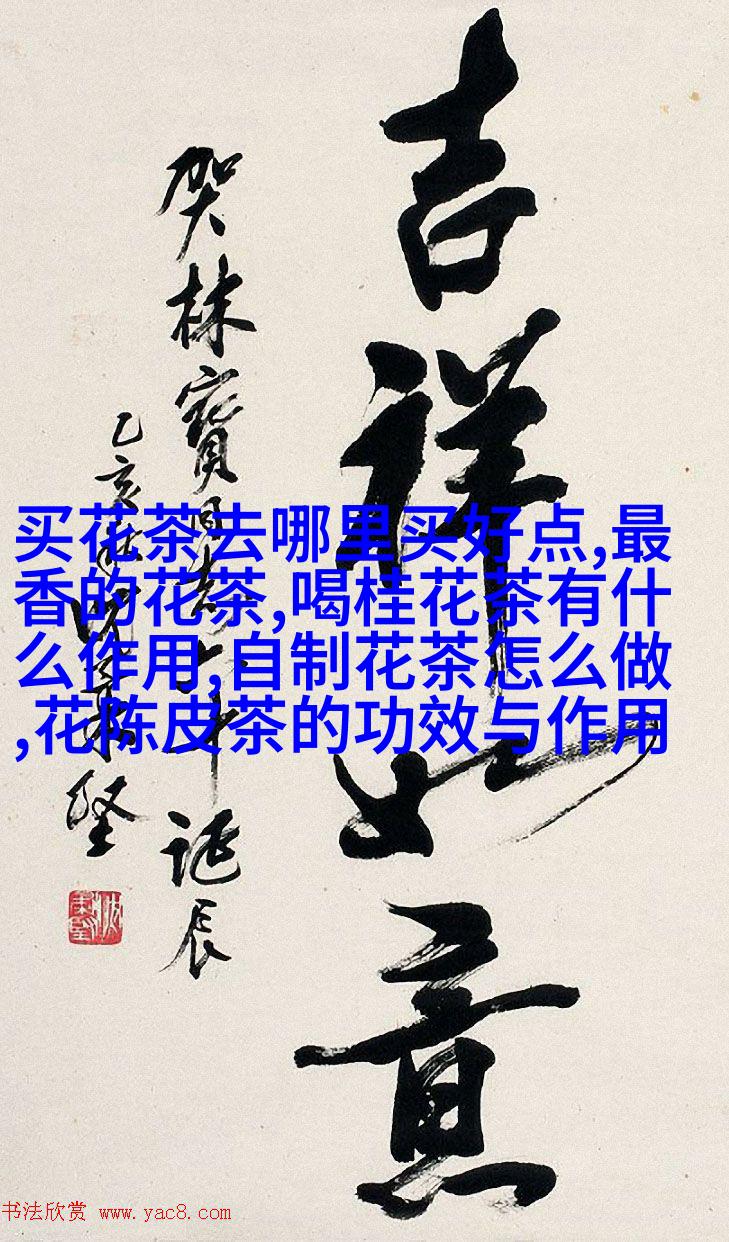 吉祥如意
贺林宝
诞辰
乙亥
买花茶去哪里买好点,最
香的花茶,喝桂花茶有什
么作用,自制花茶怎么做
,花陈皮茶的功效与作用
书法欣赏 www.yac8.com